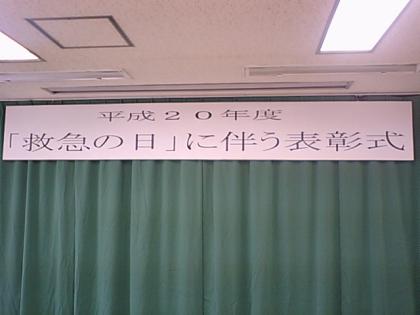 平成２０年度
「救急の日」に伴う表彰式